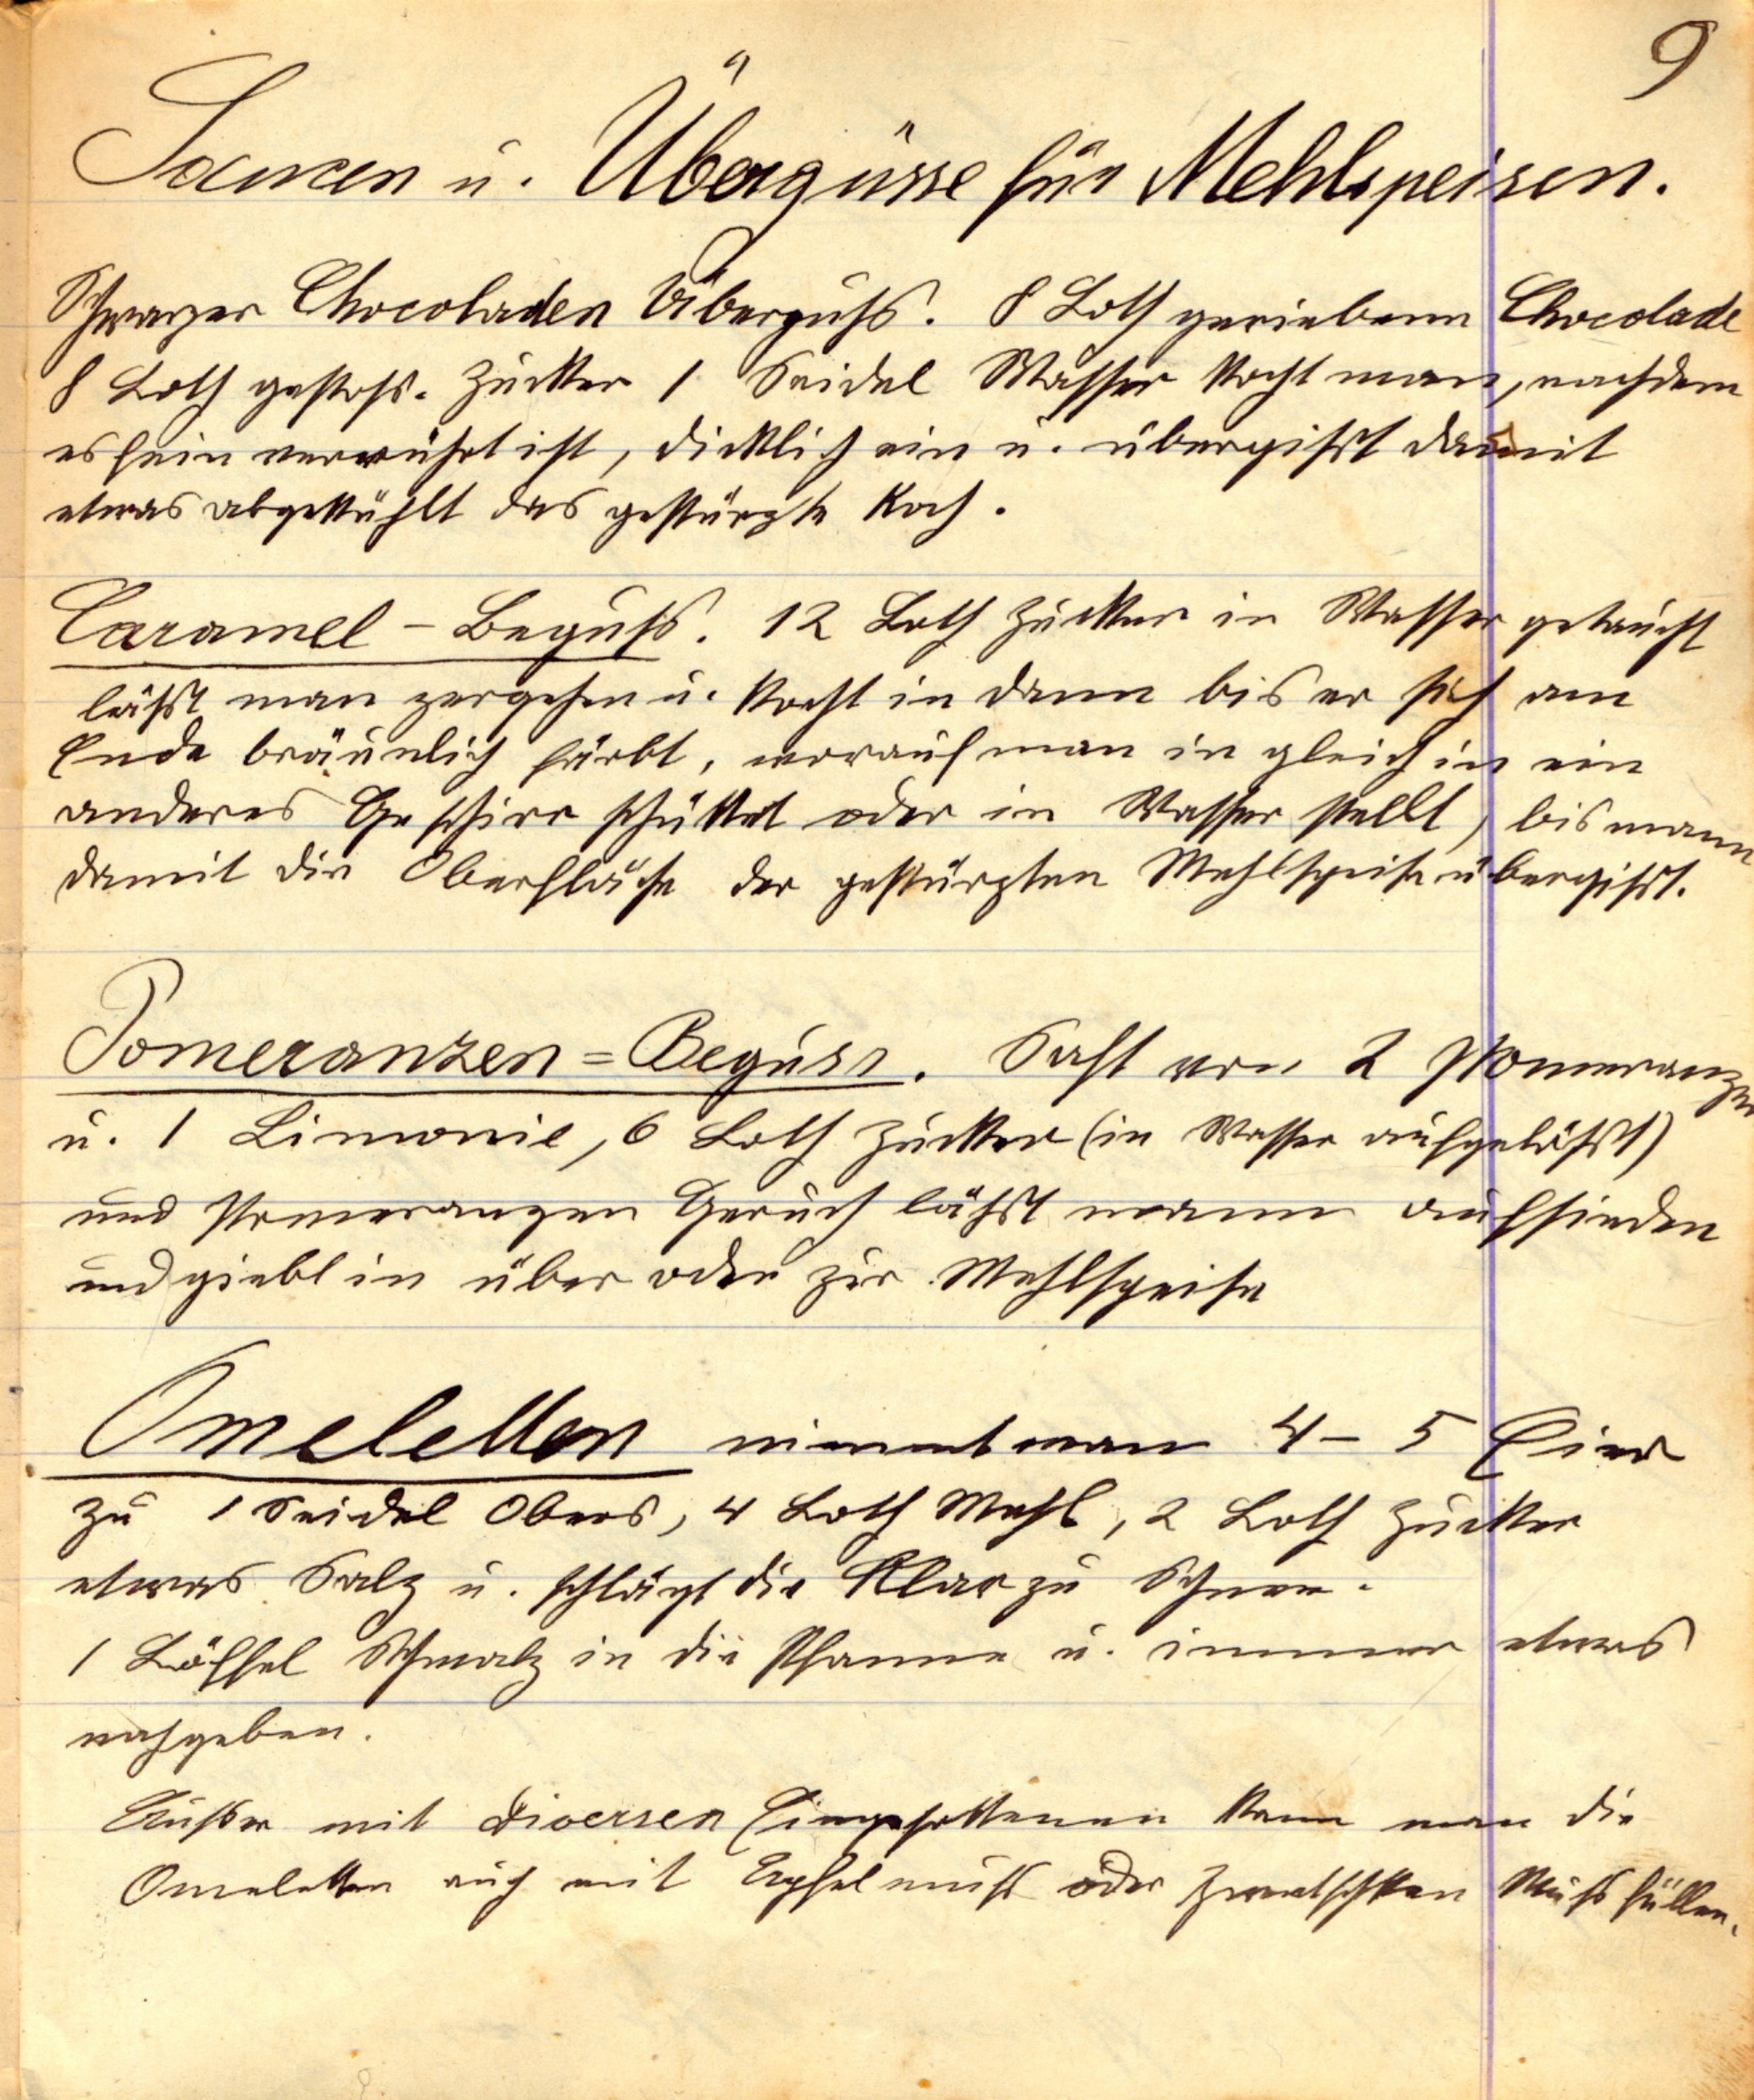 9
Saucen u. Übergüsse für Mehlspeisen.
Schwarzer Chocoladen Überguß. 8 Loth geriebene Chocolade
8 Loth gestoß. Zucker 1 Seidel Wasser kocht man, nachdem
es fein verrührt ist, dicklich ein u. übergißt damit
etwas abgekühlt das gestürzte Koch.
Caramel - Beguß. 12 Loth Zucker in Wasser getaucht
läßt man zergehen u. kocht in dann bis er sich am
Ende bräunlich färbt, worauf man in gleich in ein
anderes Geschirr schüttet oder in Wasser stellt, bis mann
damit die Oberfläche der gestürzten Mehlspeise übergißt.
Pomeranzen = Beguss. Saft von 2 Pomeranzen
u. 1 Limonie, 6 Loth Zucker (in Wasser aufgelößt)
und Pomeranzen Geruch läßt mann aufsieden
und giebt in über oder zur Mehlspeise
Omeletten nimmt man 4 - 5 Eier
zu 1 Seidel Obers, 4 Loth Mehl, 2 Loth Zucker
etwas Salz u. schlägt die Klar zu Schnee.
1 Löffel Schmalz in die Pfanne u. immer etwas
nachgeben.
Außer mit diversen Eingesottenen kann man die
Omeletten auch mit Apfelmuß oder Zwetschken Muß füllen.